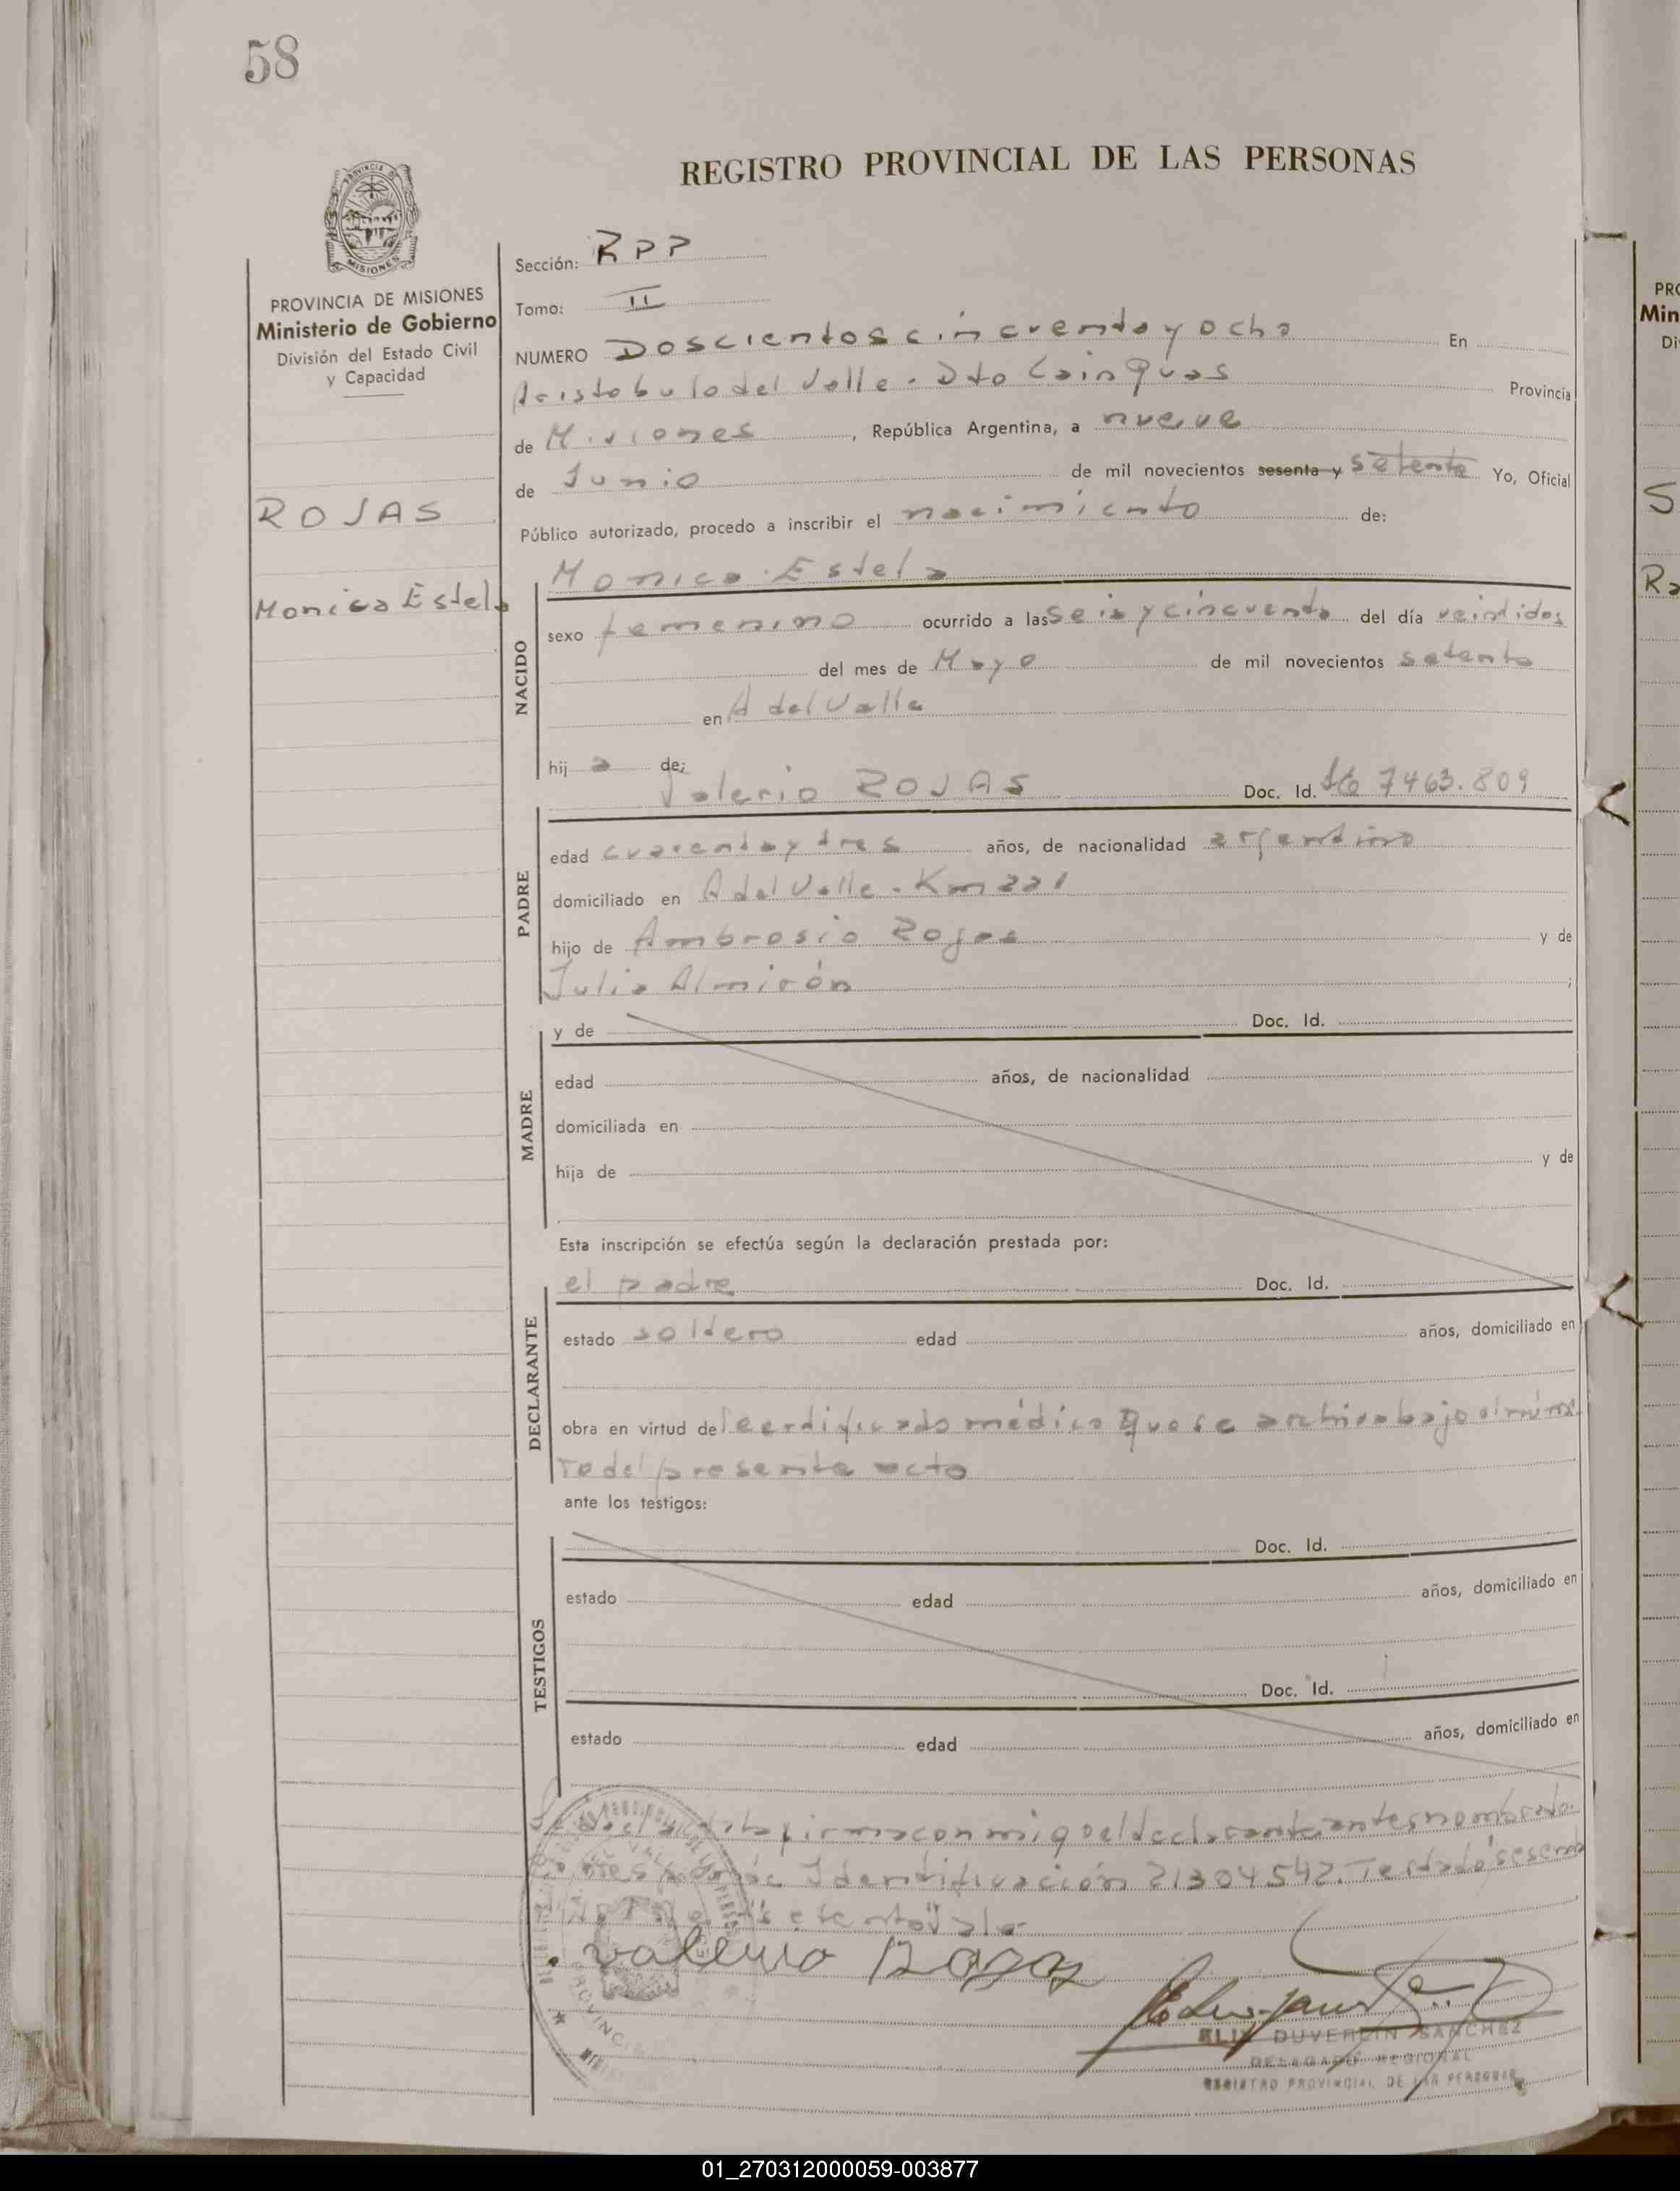 58
REGISTRO PROVINCIAL DE LAS PERSONAS
PROVINCIA DE MISIONES
Ministerio de Gobierno
División del Estado Civil
y Capacidad
ROJAS
Monica Estela
Sección: RPP
Tomo: II
NUMERO Doscientos cincuenta y ocho En
Aristobulo del Valle - Dto Cainguas Provincia
de Misiones, República Argentina, a nueve
de Junio de mil novecientos sesenta y setenta Yo, Oficial
Público autorizado, procedo a inscribir el nacimiento de:
Monica Estela
NACIDO
sexo femenino ocurrido a las seis y cincuenta del día veintidos
del mes de Mayo de mil novecientos setenta
en A del Valle
hija de:
Valerio ROJAS Doc. Id. 7463.809
PADRE
edad cuarenta y tres años, de nacionalidad argentino
domiciliado en A del Valle - Km 221
hijo de Ambrosio Rojas y de
Julia Almirón ;
MADRE
y de Doc. Id.
edad años, de nacionalidad
domiciliada en
hija de y de
Esta inscripción se efectúa según la declaración prestada por:
el padre Doc. Id.
DECLARANTE
estado soltero edad años, domiciliado en
obra en virtud del certificado médico que se archiva bajo el núme
ro del presente acta
ante los testigos:
TESTIGOS
Doc. Id.
estado edad años, domiciliado en
Doc. Id.
estado edad años, domiciliado en
acta firma conmigo el declarante antes nombrado.
Identificación 21304542. Testado "sesenta
vale.
Valerio Rojas
DUVERLIN SANCHEZ
DELEGADO REGIONAL
REGISTRO PROVINCIAL DE LAS PERSONAS
PRO
Min
Di
S
01_270312000059-003877